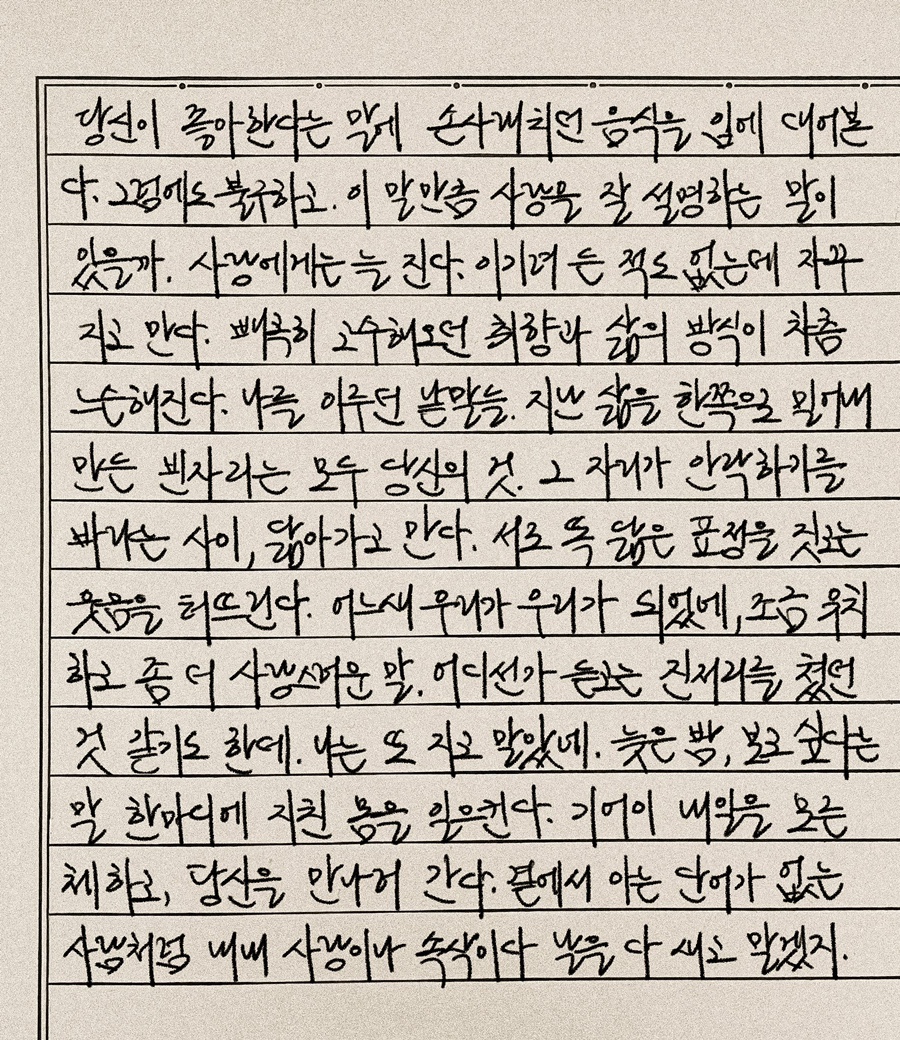 당신이 좋아한다는 말에 손사래치던 음식을 입에 대어본
다. 그럼에도 불구하고. 이 말만큼 사랑을 잘 설명하는 말이
있을까. 사랑에게는 늘 진다. 이기려 든 적도 없는데 자꾸
지고 만다. 빼곡히 고수해오던 취향과 삶의 방식이 차츰
느슨해진다. 나를 이루던 낱말들. 지난 삶을 한쪽으로 밀어내
만든 빈자리는 모두 당신의 것. 그 자리가 안락하기를
바라는 사이, 닮아가고 만다. 서로 똑 닮은 표정을 짓고는
웃음을 터뜨린다. 어느새 우리가 우리가 되었네, 조금 유치
하고 좀 더 사랑스러운 말. 어디선가 듣고는 진저리를 쳤던
것 같기도 한데. 나는 또 지고 말았네. 늦은 밤, 보고 싶다는
말 한마디에 지친 몸을 일으킨다. 기어이 내일을 모른
체 하고, 당신을 만나러 간다. 곁에서 아는 단어가 없는
사람처럼 내내 사랑이나 속삭이다 낮을 다 새고 말겠지.